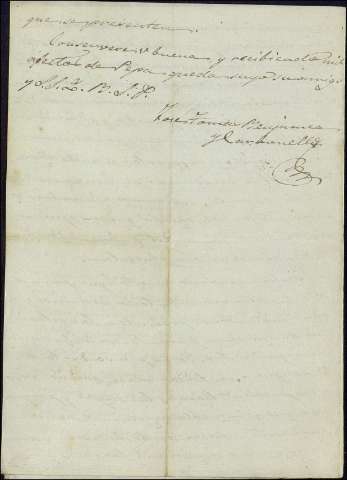 que se presenten.
Consérvese V buena, y recibiendo mil
afectos de Pepa queda suyo su amigo
y S.S.Q. B. S. P.
Jose Tomas
y Carbonell